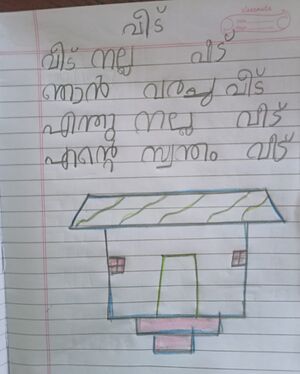 classmate
വീട്
വീട് നല്ല വീട്
ഞാൻ വരച്ച വീട്
എന്തു നല്ല വീട്
എന്റെ സ്വന്തം വീട്